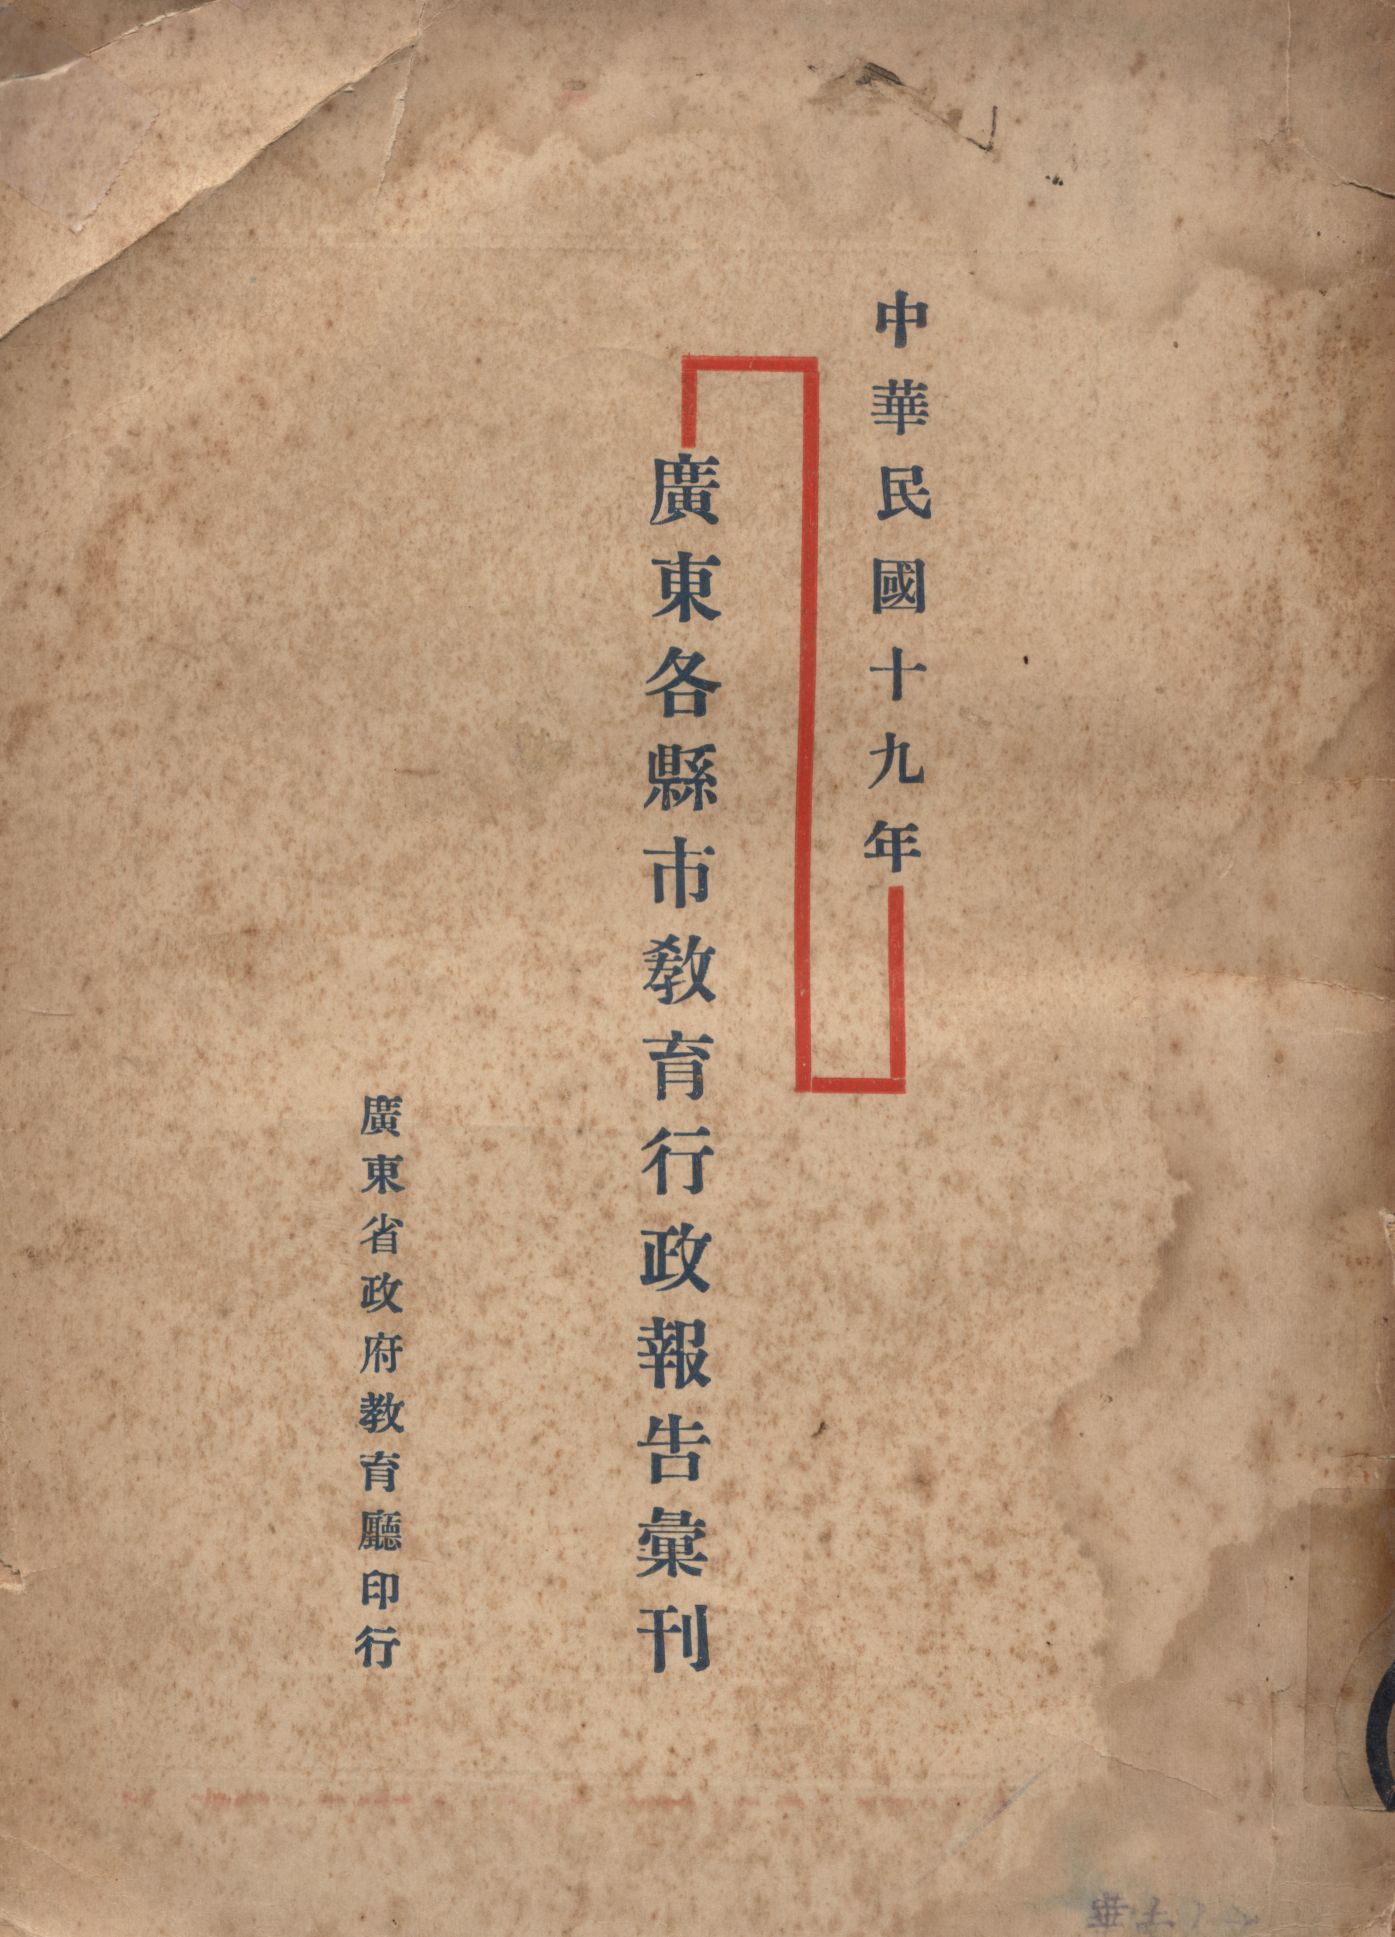 中華民國十九年
廣東各縣市教育行政報告彙刊
廣東省政府教育廳印行